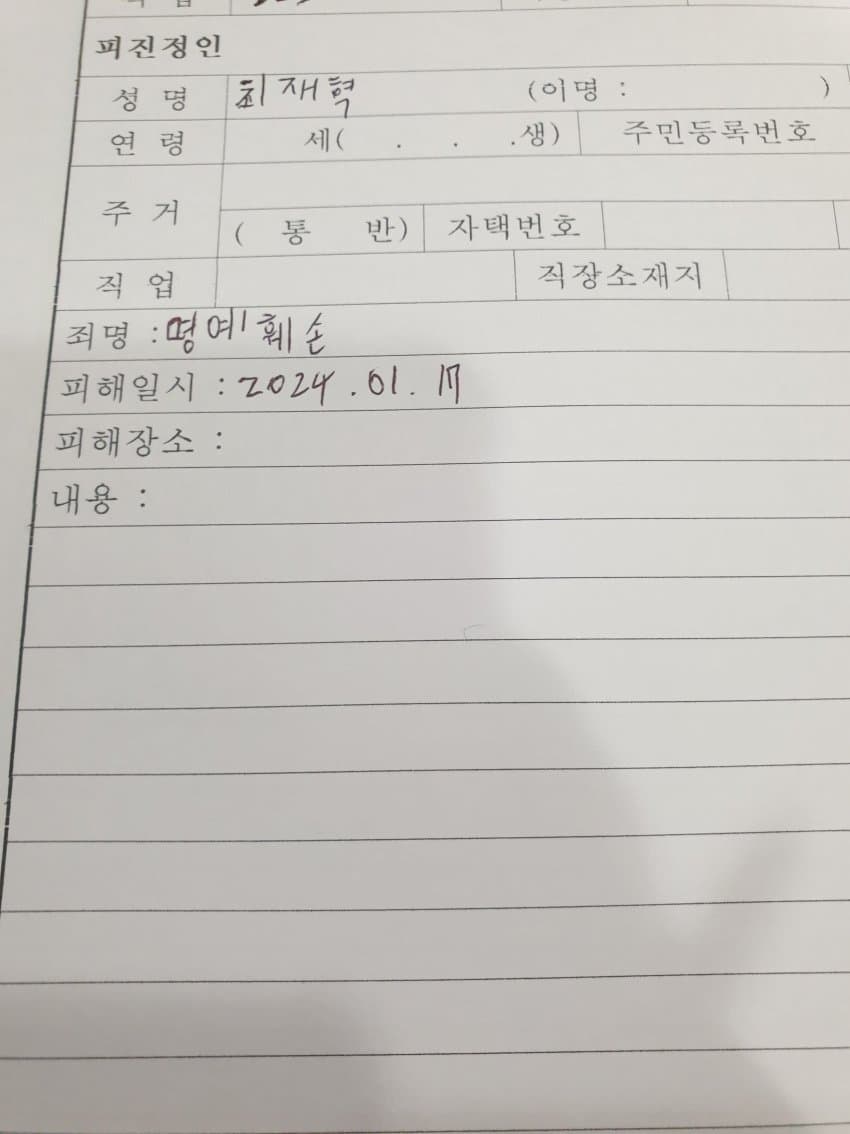 피진정인
성 명 최재혁 (이명 : )
연 령 세( . . .생) 주민등록번호
주 거
( 통 반) 자택번호
직 업 직장소재지
죄명 : 명예훼손
피해일시 : 2024. 01. 17
피해장소 :
내용 :